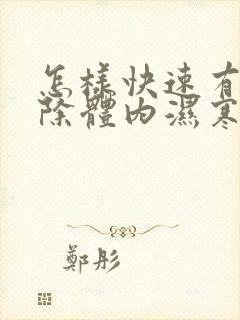 怎樣快速有
除體內濕寒
鄭彤